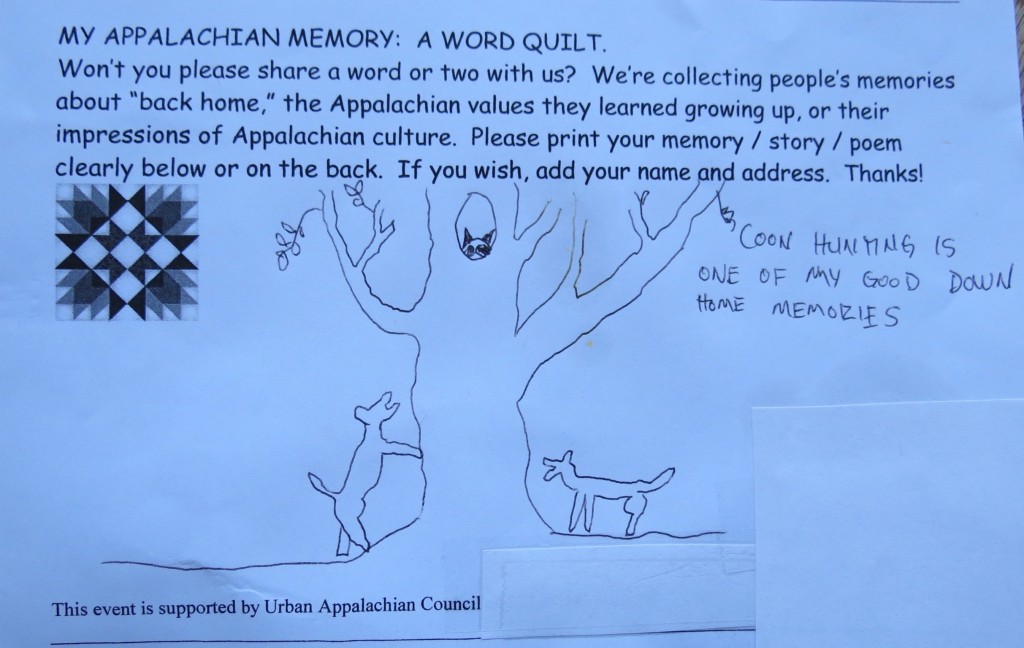 MY APPALACHIAN MEMORY: A WORD QUILT.
Won't you please share a word or two with us? We're collecting people's memories
about "back home," the Appalachian values they learned growing up, or their
impressions of Appalachian culture. Please print your memory / story / poem
clearly below or on the back. If you wish, add your name and address. Thanks!
COON HUNTING IS
ONE OF MY GOOD DOWN
HOME MEMORIES
This event is supported by Urban Appalachian Council